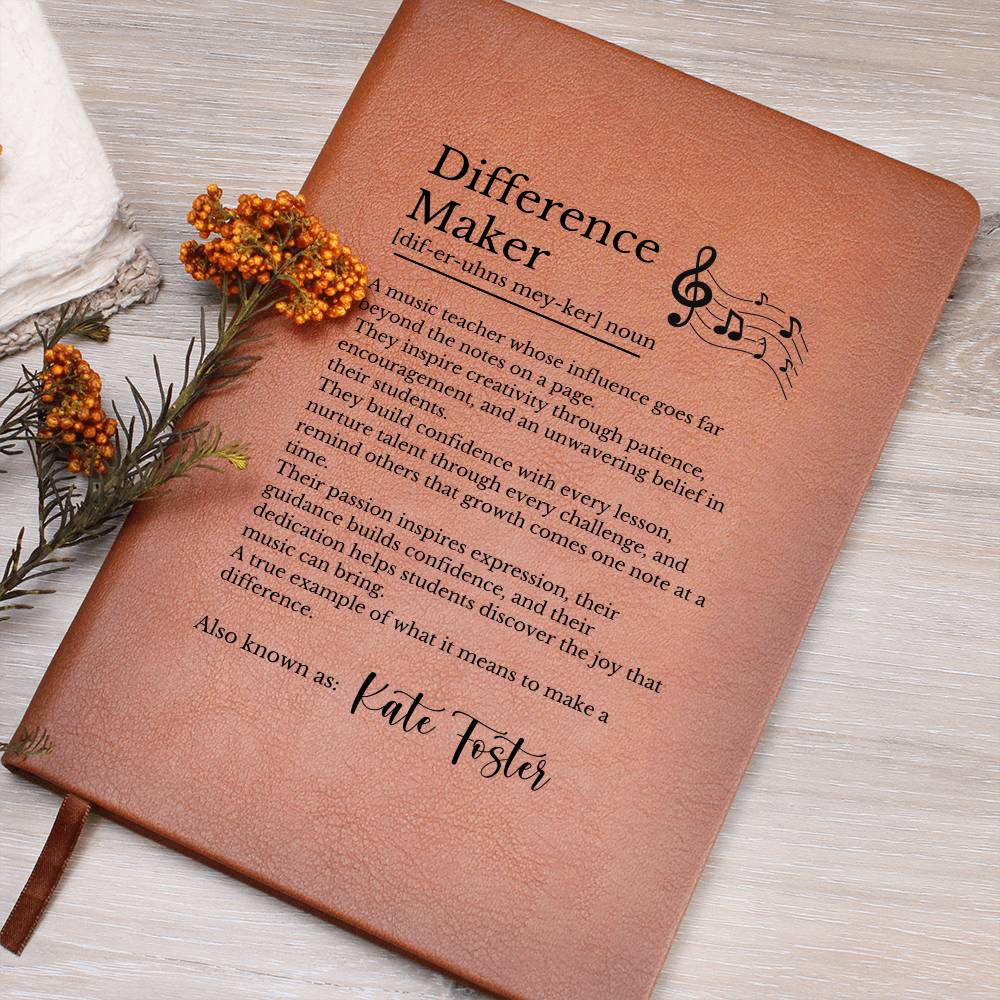 Difference
Maker
[dif-er-uhns mey-ker] noun
A music teacher whose influence goes far
beyond the notes on a page.
They inspire creativity through patience,
encouragement, and an unwavering belief in
their students.
They build confidence with every lesson,
nurture talent through every challenge, and
remind others that growth comes one note at a
time.
Their passion inspires expression, their
guidance builds confidence, and their
dedication helps students discover the joy that
music can bring.
A true example of what it means to make a
difference.
Also known as: Kate Foster